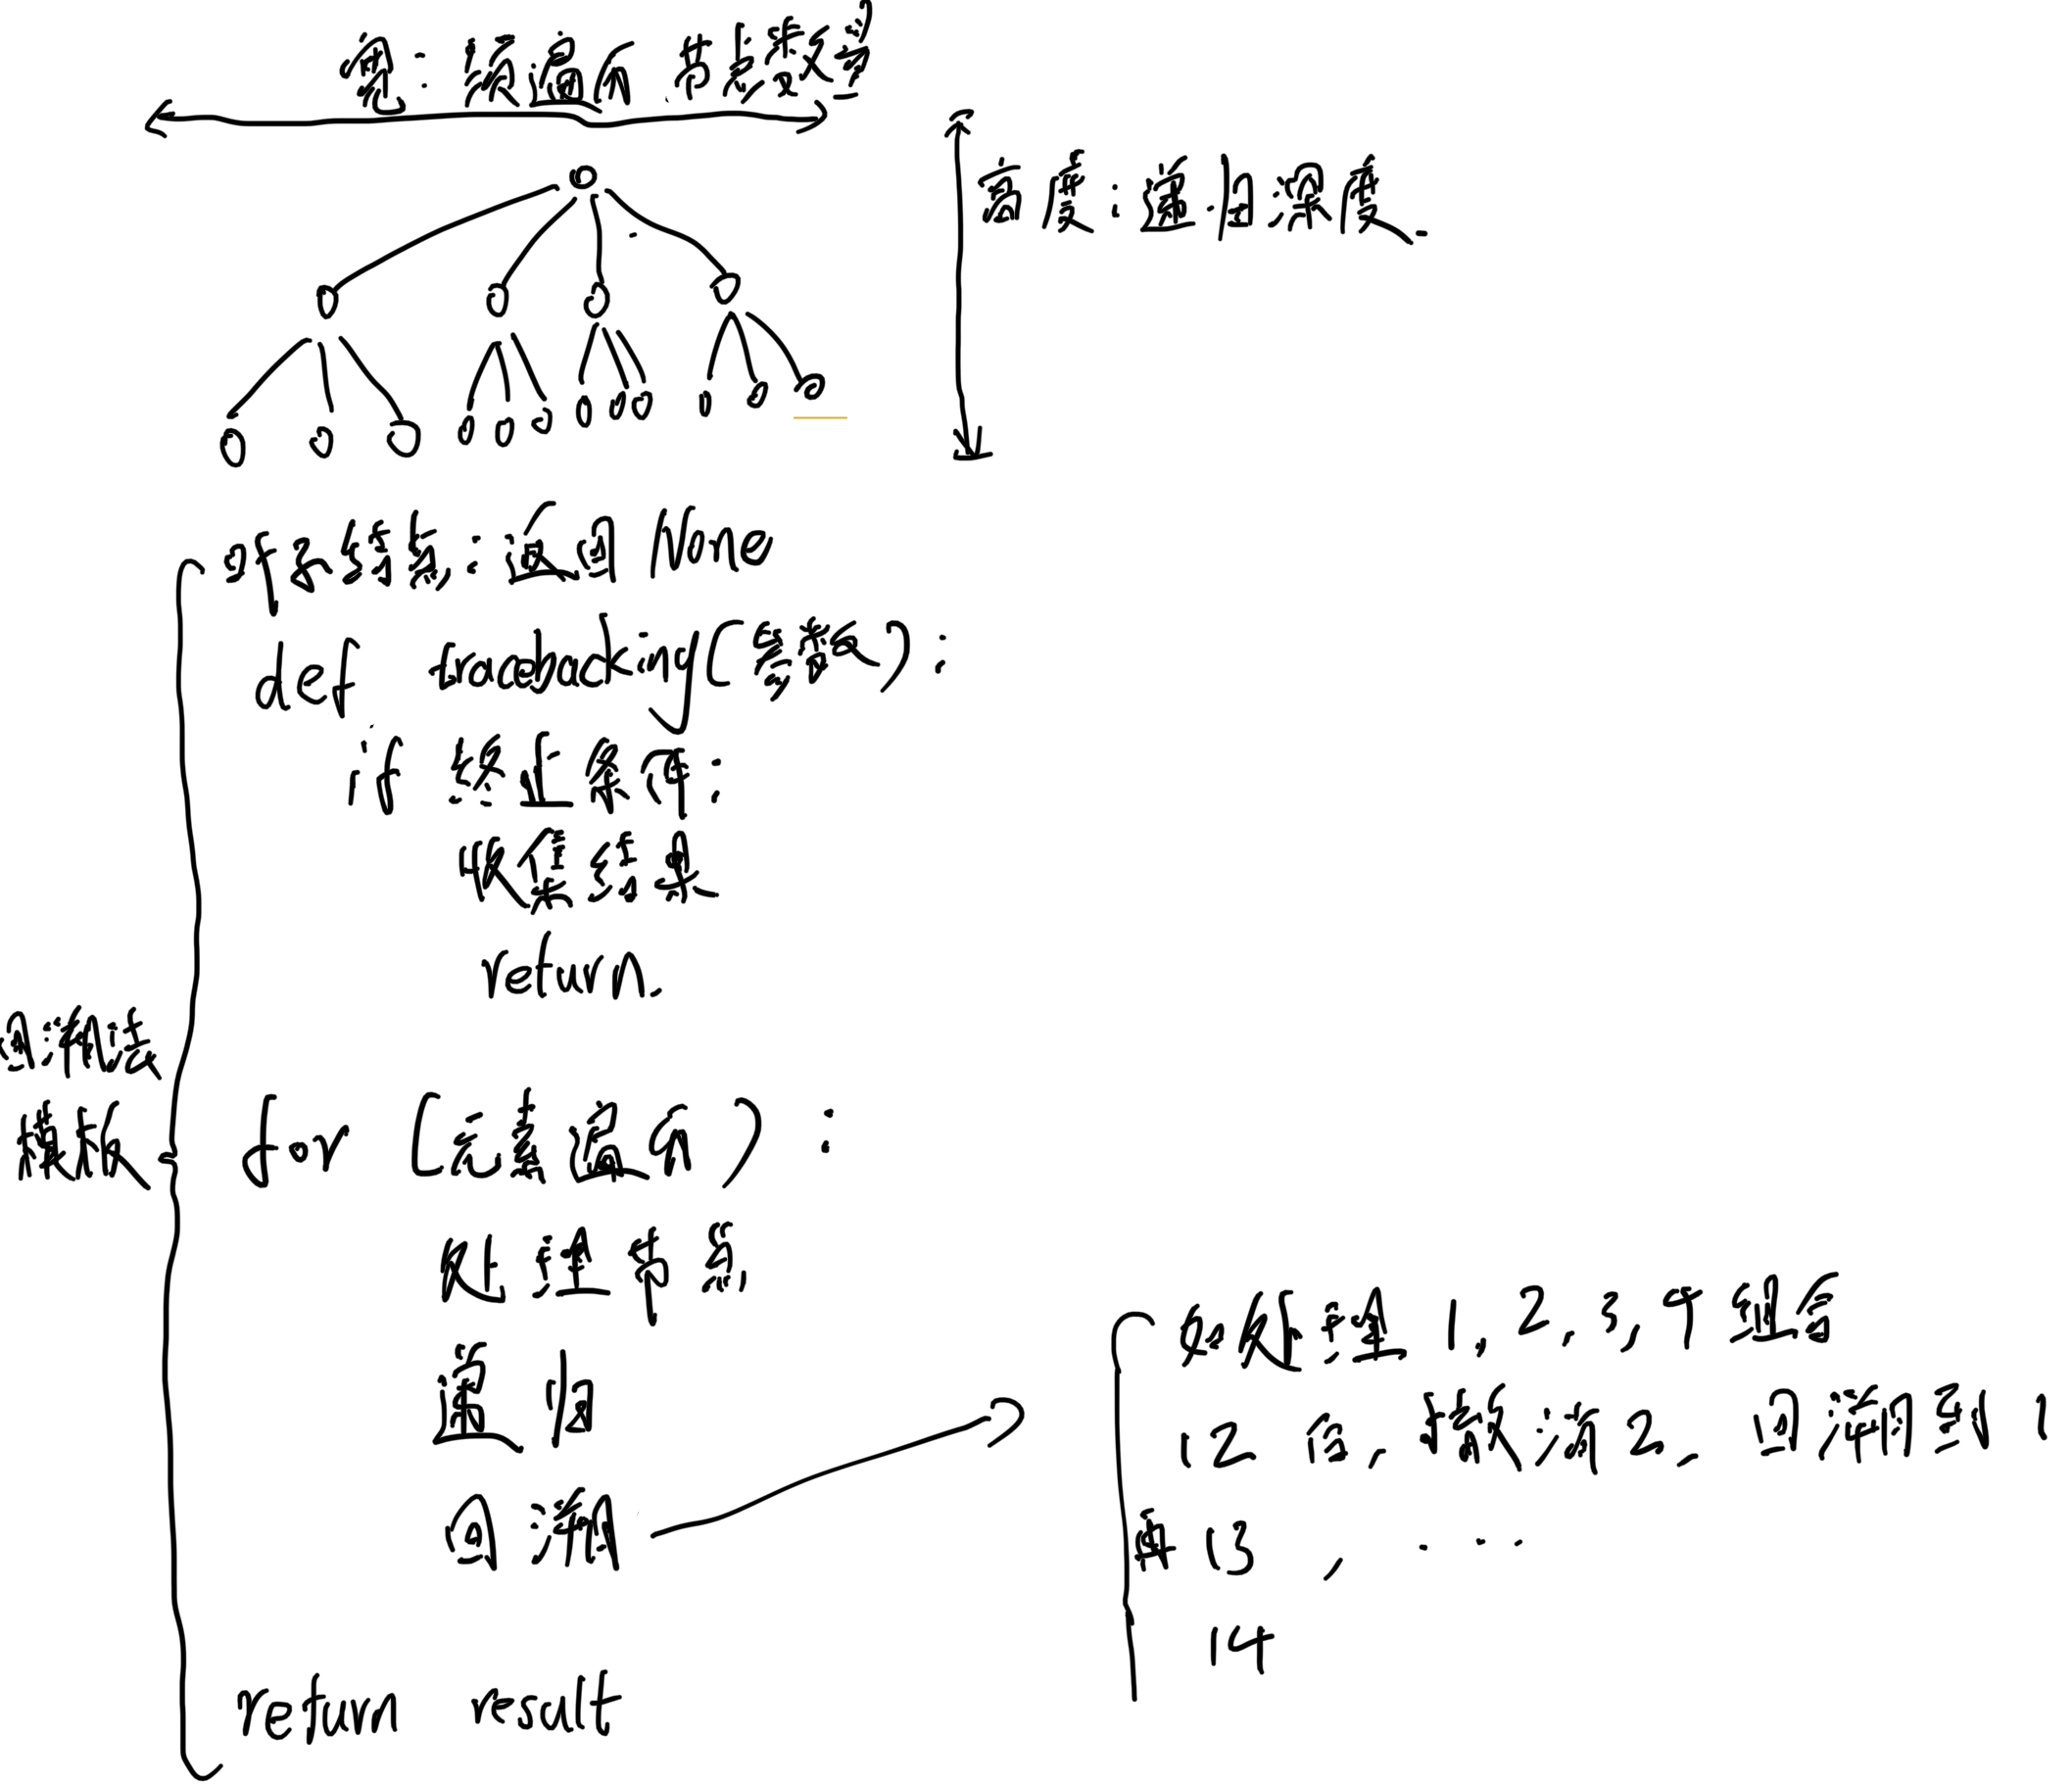 宽:须遍历 节点数量
高度:递归深度.
叶子结点:返回 None
def tracebacking(参数):
if 终止条件:
收集结果
return.
回溯法
模板
for (元素遍历):
处理节点
递归
回溯
return result
如处理 1, 2, 3, 4 组合
12 后, 撤消 2, 回溯到 1
再 13 , ...
14